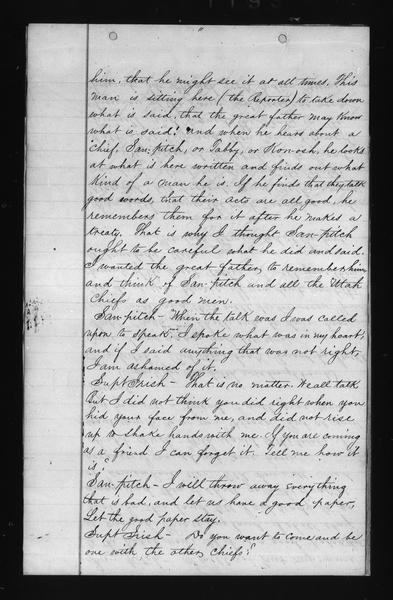 him, that he might see it at all times. This
man is sitting here (the Reporter) to take down
what is said, that the great father may know
what is said: and when he hears about a
chief San-pitch, or Tabby, or Kon-osh, he looks
at what is here written and finds out what
kind of a man he is. If he finds that they talk
good words, that their acts are all good, he
remembers them for it after he makes a
treaty. That is why I thought San-pitch
ought to be careful what he did and said.
I wanted the great father to remember him,
and think of San-pitch and all the Utah
Chiefs as good men.
San-pitch - When the talk was I was called
upon to speak. I spoke what was in my heart,
and if I said anything that was not right
I am ashamed of it.
Supt Irish - That is no matter. We all talk
But I did not think you did right when you
hid your face from me, and did not rise
up & shake hands with me. If you are coming
as a friend I can forget it. Tell me how it
is?
San-pitch - I will throw away everything
that is bad, and let us have a good paper,
Let the good paper stay.
Supt Irish - Do you want to come and be
one with the other chiefs?